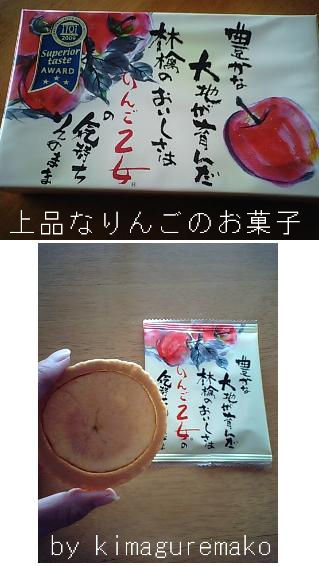 iTQi
2009
Superior
taste
AWARD
豊かな
大地が育んだ
林檎のおいしさは
りんご乙女
の
気持ち
そのまま
上品なりんごのお菓子
豊かな
大地が育んだ
林檎のおいしさは
りんご乙女
の
気持ち
by kimaguremako